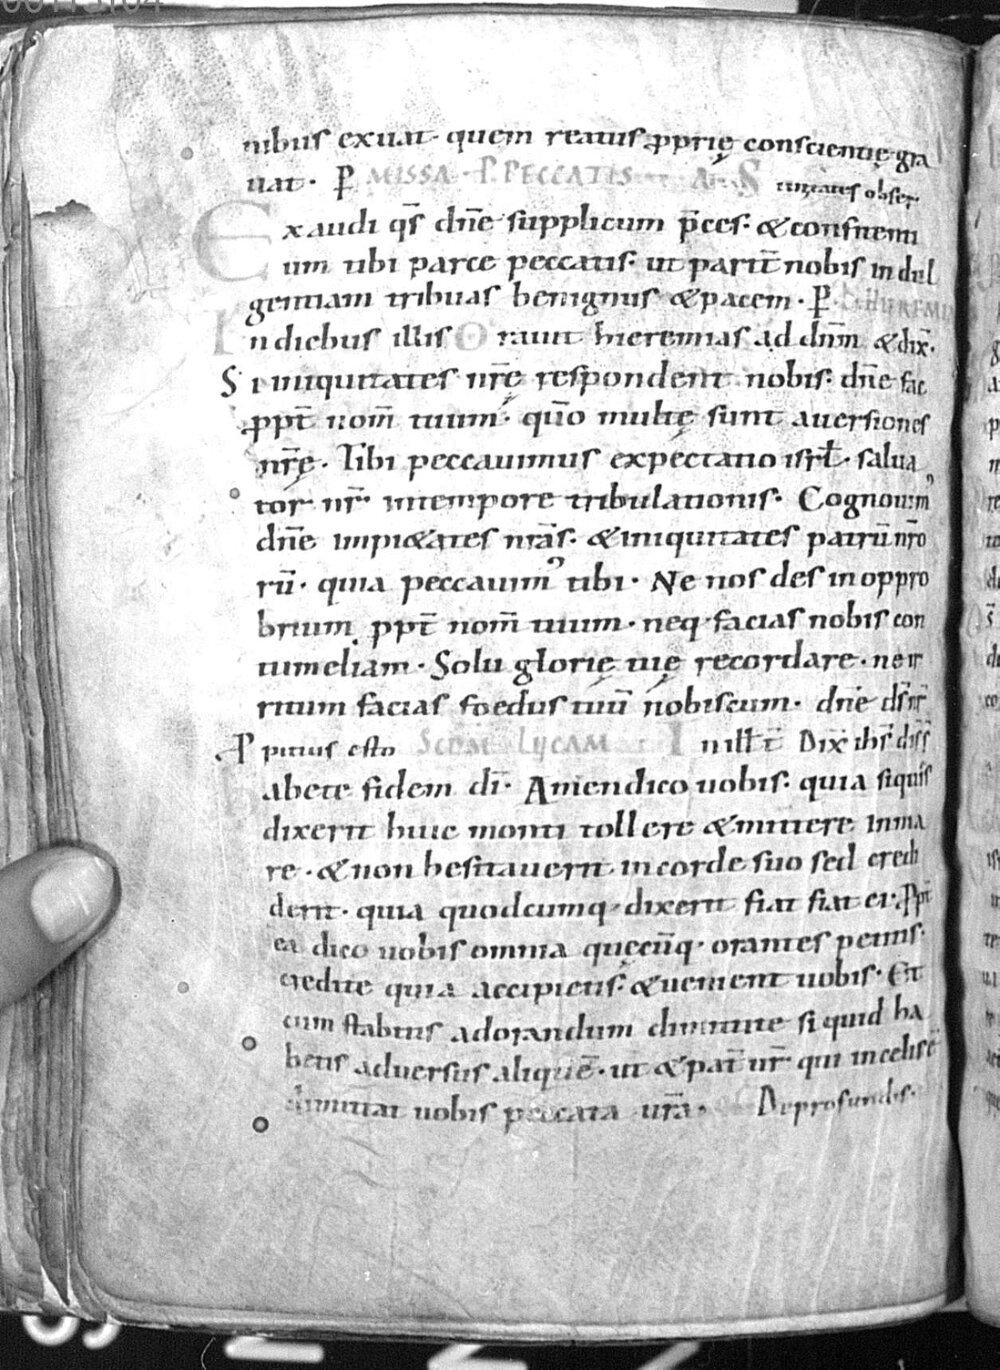 nibus exuat· quem reatus ꝓprię conscientię gra
uat· P̄ MISSA · P. PECCATIS · A S iniquitates obser.
Exaudi q̄s dn̄e supplicum p̄ces· & confitenti
um tibi parce peccatis· ut parit̄ nobis indul
gentiam tribuas benignus & pacem· P̄ HIEREMI
In diebus illis Orauit hieremias ad dn̄m & dix̄·
Si iniquitates nr̄ę responderint nobis· dn̄e fac
ꝓpt̄ nom̄ tuum· qm̄o multę sunt auersiones
nr̄ę· Tibi peccauimus expectatio isrl̄· salua
tor nr̄ in tempore tribulationis· Cognouim᾿
dn̄e impi&ates nr̄as· & iniquitates patrū nr̄o
rū· quia peccauim᾿ tibi· Ne nos des in oppro
brium ppt̄ nom̄ tuum· neq· facias nobis con
tumeliam· Solii glorię tuę recordare· ne ir
ritum facias foedus tuū nobiscum· dn̄e ds̄ nr̄
Ꝓpitius esto SCDM LUCAM In ill̄ t̄ Dix̄ ihs̄ diss̄
abete fidem dī· Amen dico uobis· quia siquis
dixerit huic monti tollere & mittere in ma
re· & non hesitauerit in corde suo sed credi
derit· quia quodcumq· dixerit fiat fiat ei· Ꝓpt̄
ea dico uobis omnia quęcūq· orantes petitis·
credite quia accipietis· & uenient uobis· Et
cum stabitis ad orandum dimittite si quid ha
betis aduersus aliquē· ut & pat̄ ur̄ qui in celis ē
dimittat uobis peccata ur̄a· Deprofundis·